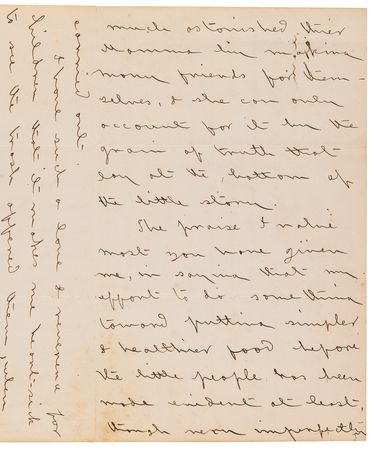 much astonished their
Mamma by making
many friends for them-
selves, & she can only
account for it by the
grain of truth that
lay at the bottom of
the little story.
The praise I value
most you have given
me, in saying that my
effort to do something
toward putting simpler
& healthier food before
the little people has been
made evident at least,
though very imperfectly
carried out.
I have such a love & reverence for
children that it makes me heart-sick
to see the trash offered them, when